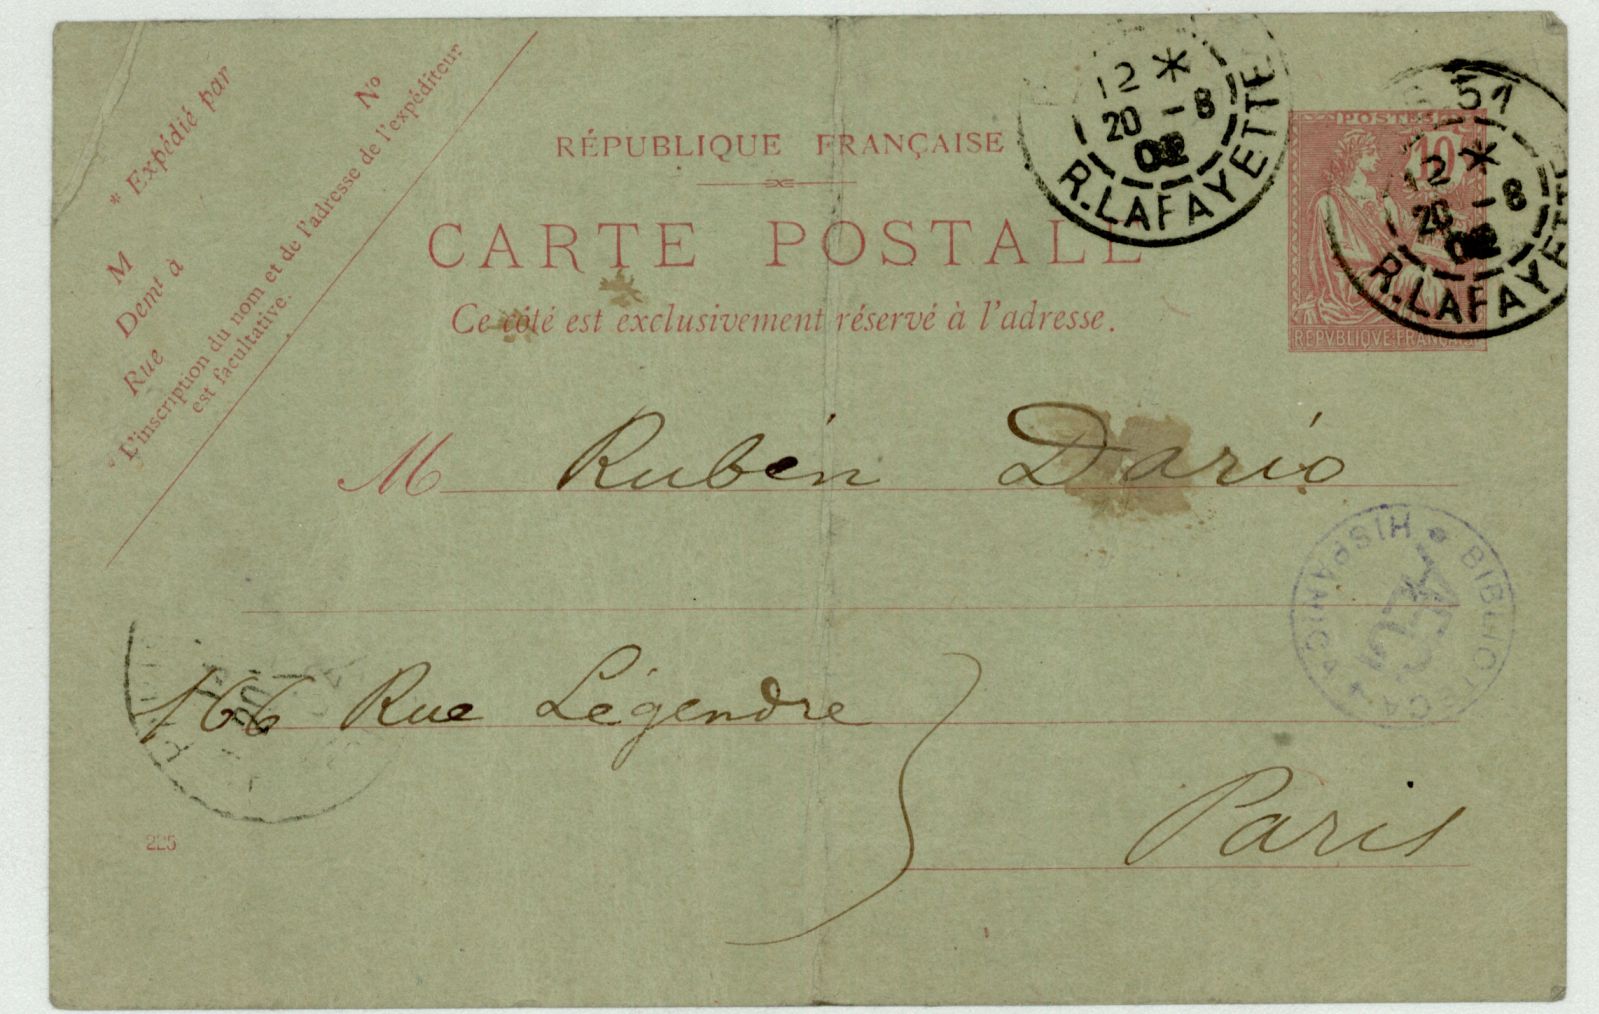 * Expédié par
M
Demt à
Rue
No
* L'inscription du nom et de l'adresse de l'expéditeur
est facultative.
RÉPUBLIQUE FRANÇAISE
CARTE POSTALE
Ce côté est exclusivement réservé à l'adresse.
12 *
20 - 8
02
R. LAFAYETTE
51
12 *
20 - 8
02
R. LAFAYETTE
POSTES
10
REPVBLIQVE FRANÇAISE
M Rubén Darío
BIBLIOTECA HISPANICA
166 Rue Légendre
Paris
225